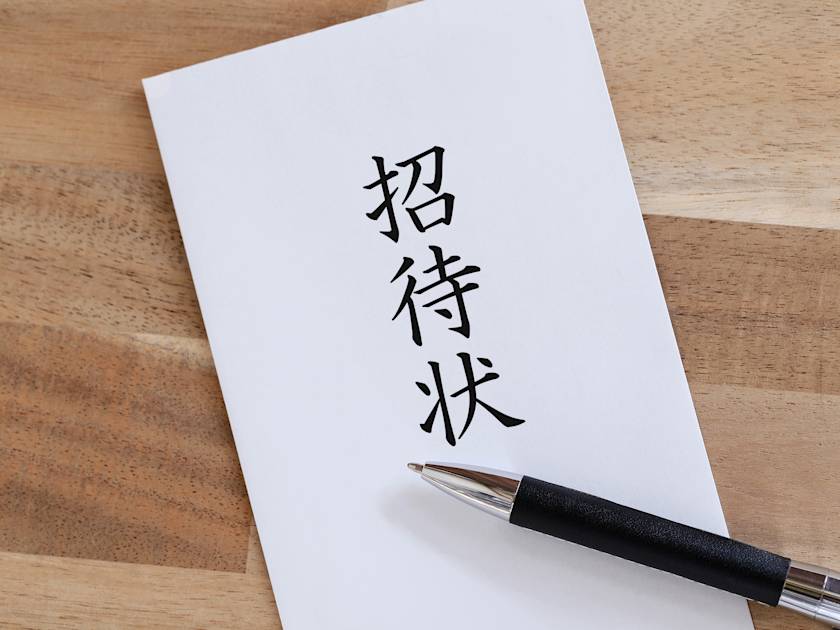 招待状